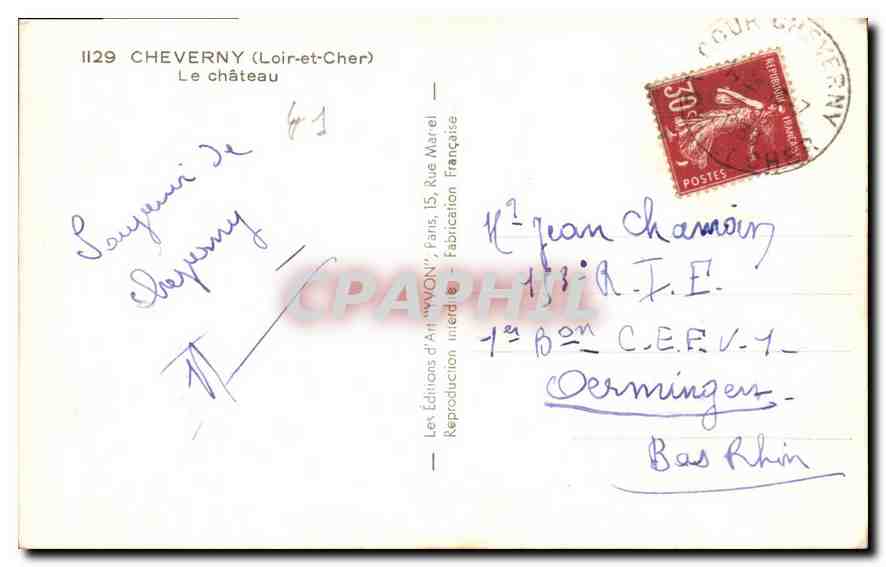 1129 CHEVERNY (Loir-et-Cher)
Le château
41
Souvenir de
Cheverny
Les Éditions d'Art "YVON", Paris, 15, Rue Martel
Reproduction interdite - Fabrication Française
COUR CHEVERNY
CHER
REPUBLIQUE FRANÇAISE
30c
POSTES
CPAPHIL
Mr Jean Chamoin
153e R. I. F.
1er Bon C.E.F.V.1
Oermingen
Bas Rhin